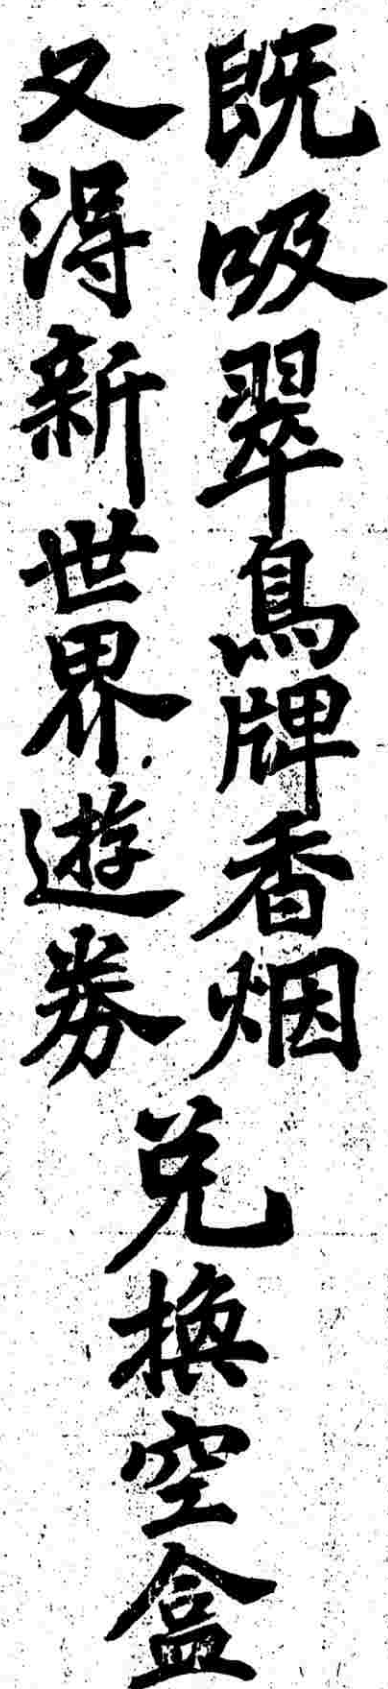 既吸翠鳥牌香烟
又得新世界遊券
兌換空盒